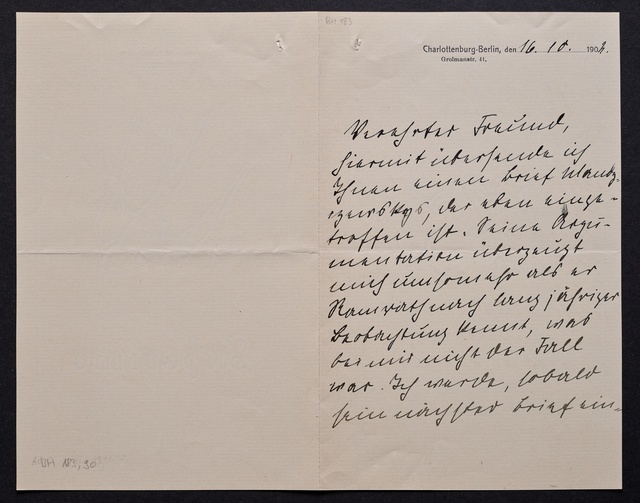 BH 183
Charlottenburg-Berlin, den 16. 10. 1902.
Grolmanstr. 41.
Verehrter Freund,
hiermit übersende ich
Ihnen einen Brief Mandy-
czewskys, der eben einge-
troffen ist. Seine Argu-
mentation überzeugt
mich umsomehr als er
nach langjähriger
Beobachtung kennt, was
bei mir nicht der Fall
war. Ich werde, sobald
sein nächster Brief ein-
BH 183, 30